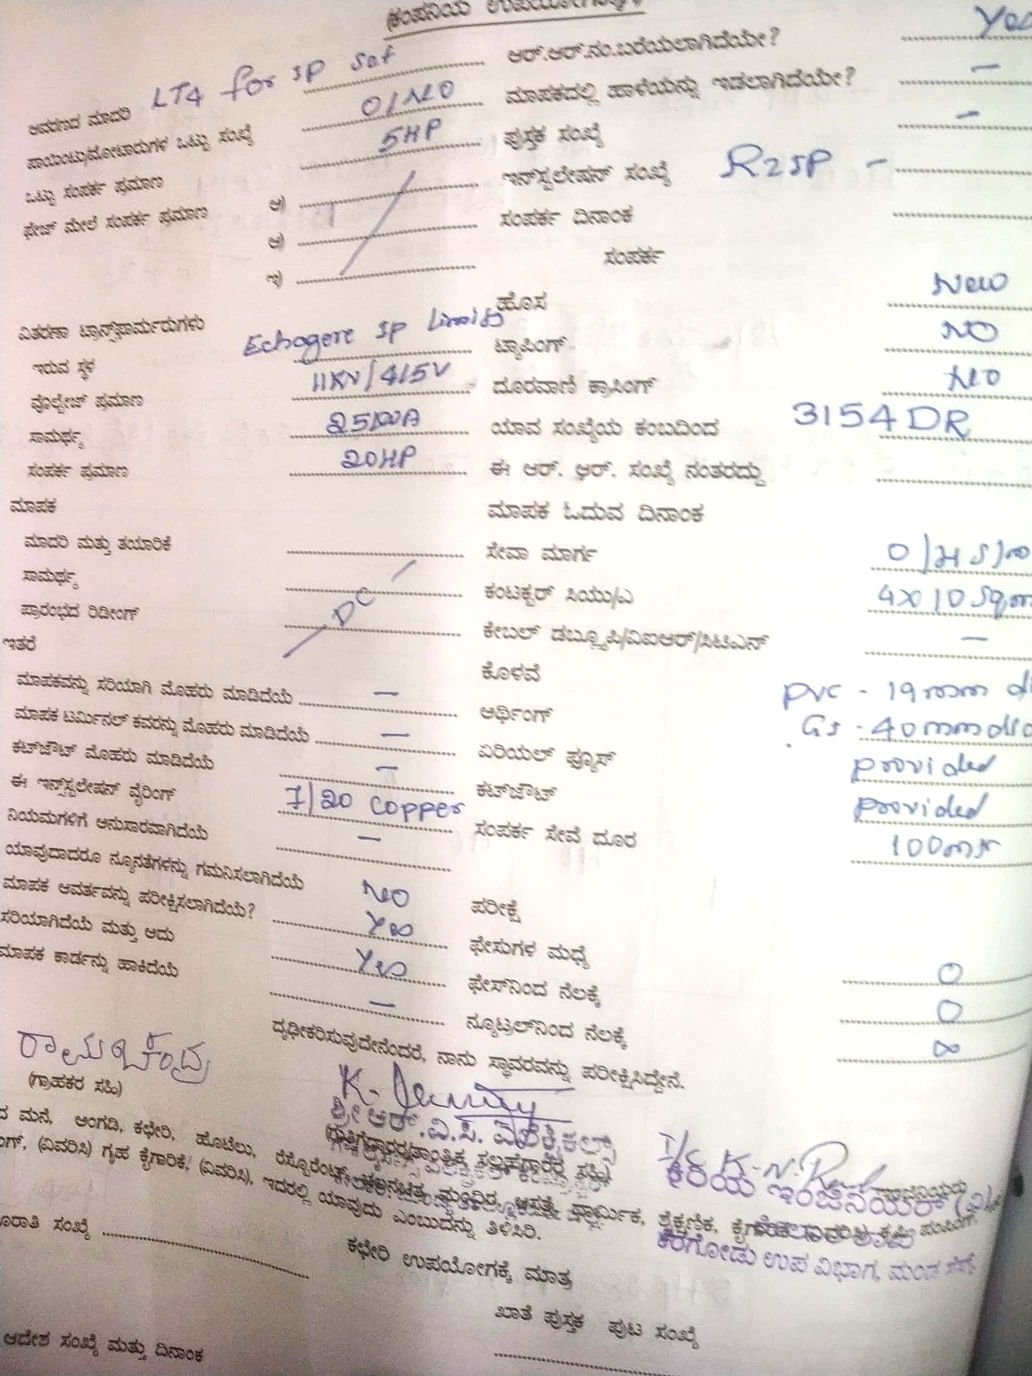 (ಕಂಪನಿಯ ಉಪಯೋಗಕ್ಕಾಗಿ)
ಆವರಣದ ಮಾದರಿ LT4 for IP Set
ಆರ್.ಆರ್.ನಂ.ಬರೆಯಲಾಗಿದೆಯೇ? Yes
ಪಾಯಿಂಟು/ಮೋಟಾರುಗಳ ಒಟ್ಟು ಸಂಖ್ಯೆ 01 No
ಮಾಪಕದಲ್ಲಿ ಹಾಳೆಯನ್ನು ಇಡಲಾಗಿದೆಯೇ? –
ಒಟ್ಟು ಸಂಪರ್ಕ ಪ್ರಮಾಣ 5HP
ಪುಸ್ತಕ ಸಂಖ್ಯೆ –
ಫೇಜ್ ಮೇಲೆ ಸಂಪರ್ಕ ಪ್ರಮಾಣ ಅ)
ಇನ್‌ಸ್ಟಲೇಷನ್ ಸಂಖ್ಯೆ
ಆ)
ಸಂಪರ್ಕ ದಿನಾಂಕ
ಇ)
ಸಂಪರ್ಕ
ವಿತರಣಾ ಟ್ರಾನ್ಸ್‌ಫಾರ್ಮರುಗಳು
ಹೊಸ New
ಇರುವ ಸ್ಥಳ Echagere IP Limits
ಟ್ಯಾಪಿಂಗ್ NO
ವೊಲ್ಟೇಜ್ ಪ್ರಮಾಣ 11KV/415V
ದೂರವಾಣಿ ಕ್ರಾಸಿಂಗ್ No
ಸಾಮರ್ಥ್ಯ 25KVA
ಯಾವ ಸಂಖ್ಯೆಯ ಕಂಬದಿಂದ 3154DR
ಸಂಪರ್ಕ ಪ್ರಮಾಣ 20HP
ಈ ಆರ್. ಆರ್. ಸಂಖ್ಯೆ ನಂತರದ್ದು
ಮಾಪಕ
ಮಾಪಕ ಓದುವ ದಿನಾಂಕ
ಮಾದರಿ ಮತ್ತು ತಯಾರಿಕೆ
ಸೇವಾ ಮಾರ್ಗ
ಸಾಮರ್ಥ್ಯ
ಕಂಟಕ್ಟರ್ ಸಿಯು/ಎ 4x10 Sqmm
ಪ್ರಾರಂಭದ ರಿಡೀಂಗ್ DC
ಕೇಬಲ್ ಡಬ್ಲ್ಯೂಪಿ/ವಿಐಆರ್/ಸಿಟಿಎನ್ –
ಇತರೆ
ಕೊಳವೆ PVC - 19mm di
ಮಾಪಕವನ್ನು ಸರಿಯಾಗಿ ಮೊಹರು ಮಾಡಿದೆಯೆ –
ಆರ್ಥಿಂಗ್ GI - 40mm dia
ಮಾಪಕ ಟರ್ಮಿನಲ್ ಕವರನ್ನು ಮೊಹರು ಮಾಡಿದೆಯೆ –
ಏರಿಯಲ್ ಫ್ಯೂಸ್ provided
ಕಟ್‌ಔಟ್ ಮೊಹರು ಮಾಡಿದೆಯೆ –
ಕಟ್‌ಔಟ್ provided
ಈ ಇನ್ಸ್‌ಸ್ಟಲೇಷನ್ ವೈರಿಂಗ್ 7/20 copper
ಸಂಪರ್ಕ ಸೇವೆ ದೂರ 100mtr
ನಿಯಮಗಳಿಗೆ ಅನುಸಾರವಾಗಿದೆಯೆ –
ಯಾವುದಾದರೂ ನ್ಯೂನತೆಗಳನ್ನು ಗಮನಿಸಲಾಗಿದೆಯೆ NO
ಪರೀಕ್ಷೆ
ಮಾಪಕ ಆವರ್ತವನ್ನು ಪರೀಕ್ಷಿಸಲಾಗಿದೆಯೆ? Yes
ಫೇಸುಗಳ ಮಧ್ಯೆ 0
ಸರಿಯಾಗಿದೆಯೆ ಮತ್ತು ಅದು Yes
ಫೇಸ್‌ನಿಂದ ನೆಲಕ್ಕೆ 0
ಮಾಪಕ ಕಾರ್ಡನ್ನು ಹಾಕಿದೆಯೆ –
ನ್ಯೂಟ್ರಲ್‌ನಿಂದ ನೆಲಕ್ಕೆ ∞
ದೃಢೀಕರಿಸುವುದೇನೆಂದರೆ, ನಾನು ಸ್ಥಾವರವನ್ನು ಪರೀಕ್ಷಿಸಿದ್ದೇನೆ.
ರಾಮಚಂದ್ರ
(ಗ್ರಾಹಕರ ಸಹಿ)
ಶ್ರೀ ಆರ್.ವಿ.ಸಿ. ಎಲೆಕ್ಟ್ರಿಕಲ್ಸ್
(ಗುತ್ತಿಗೆದಾರರ/ತಾಂತ್ರಿಕ ಸಲಹೆಗಾರರ ಸಹಿ)
ಕಿರಿಯ ಇಂಜಿನಿಯರ್ (ವಿ)
ಕೆರಗೋಡು ಉಪ ವಿಭಾಗ, ಮಂಡ್ಯ
ಮನೆ, ಅಂಗಡಿ, ಕಛೇರಿ, ಹೊಟೆಲು, ರೆಸ್ಟೊರೆಂಟ್, ಚಲನಚಿತ್ರ ಮಂದಿರ, ಆಸ್ಪತ್ರೆ, ಧಾರ್ಮಿಕ, ಶೈಕ್ಷಣಿಕ,
(ವಿವರಿಸಿ) ಗೃಹ ಕೈಗಾರಿಕೆ, (ವಿವರಿಸಿ), ಇದರಲ್ಲಿ ಯಾವುದು ಎಂಬುದನ್ನು ತಿಳಿಸಿರಿ.
ಸಂಖ್ಯೆ
ಕಛೇರಿ ಉಪಯೋಗಕ್ಕೆ ಮಾತ್ರ
ಖಾತೆ ಪುಸ್ತಕ ಪುಟ ಸಂಖ್ಯೆ
ಆದೇಶ ಸಂಖ್ಯೆ ಮತ್ತು ದಿನಾಂಕ